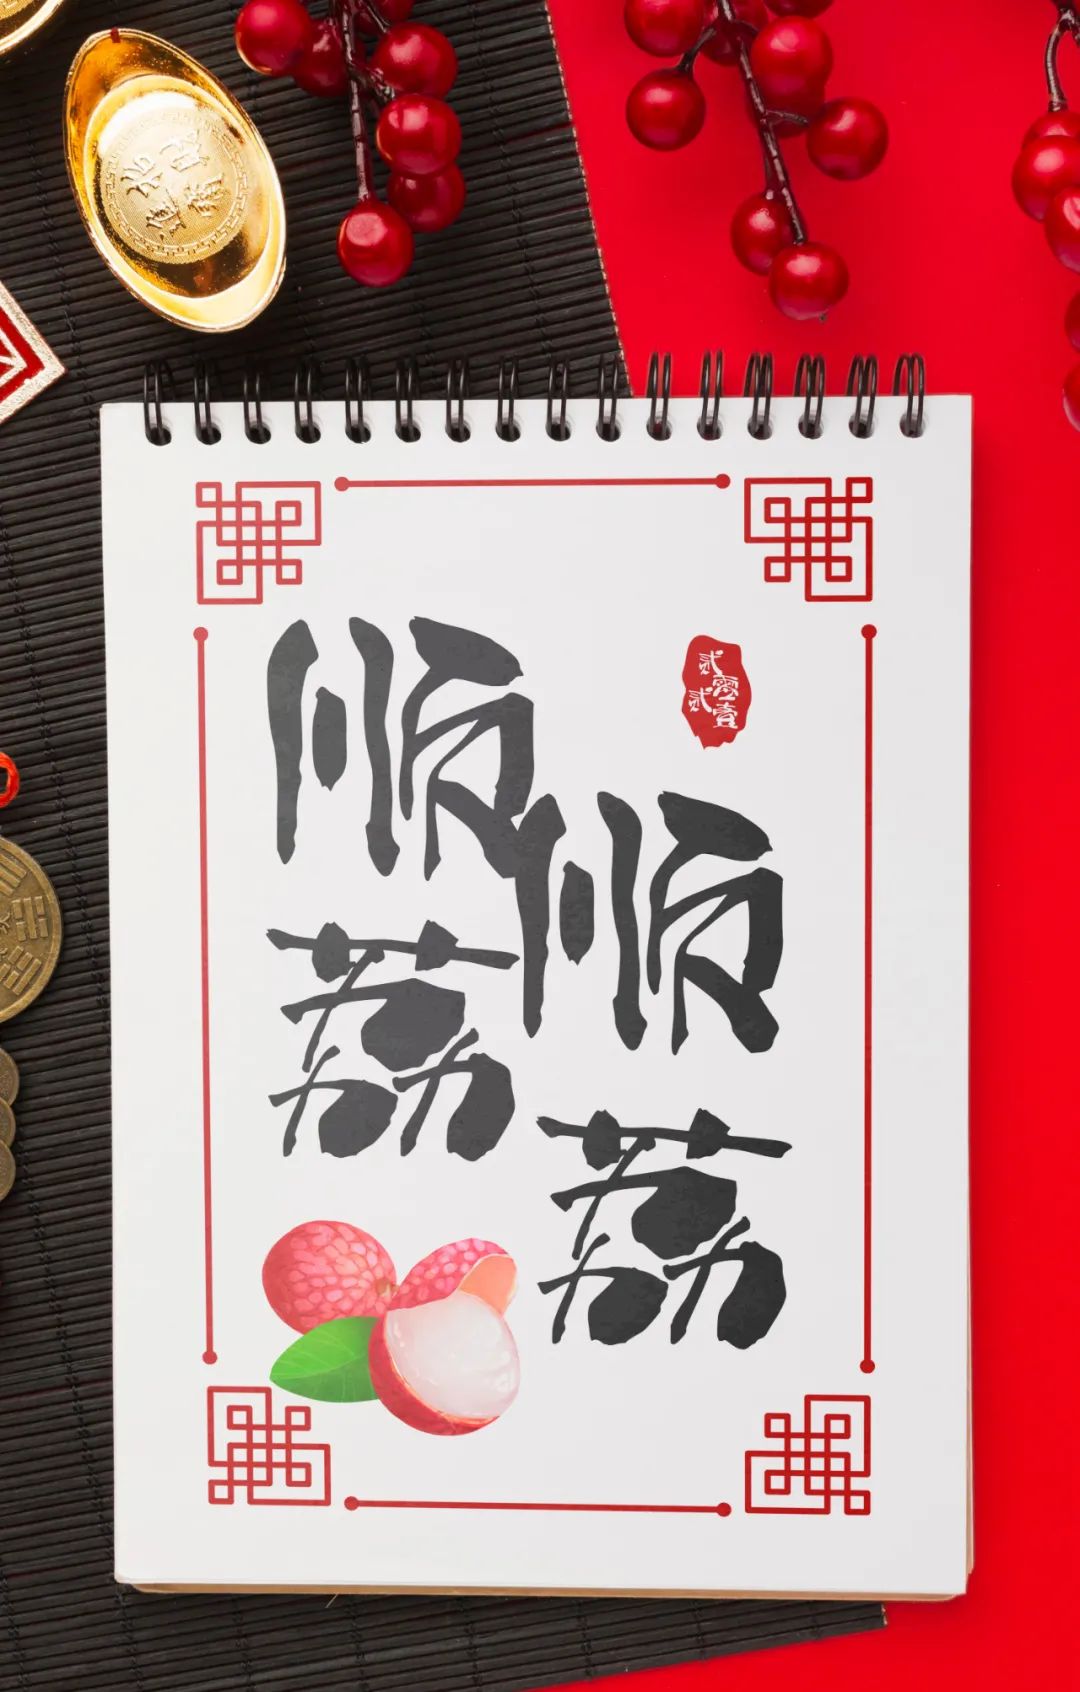 顺顺
荔荔
贰零
贰壹